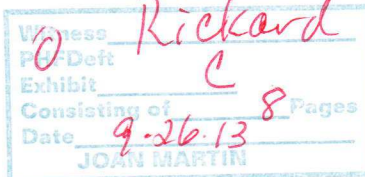 Witness Rickard
Pltf/Deft
Exhibit C
Consisting of 8 Pages
Date 9-26-13
JOAN MARTIN